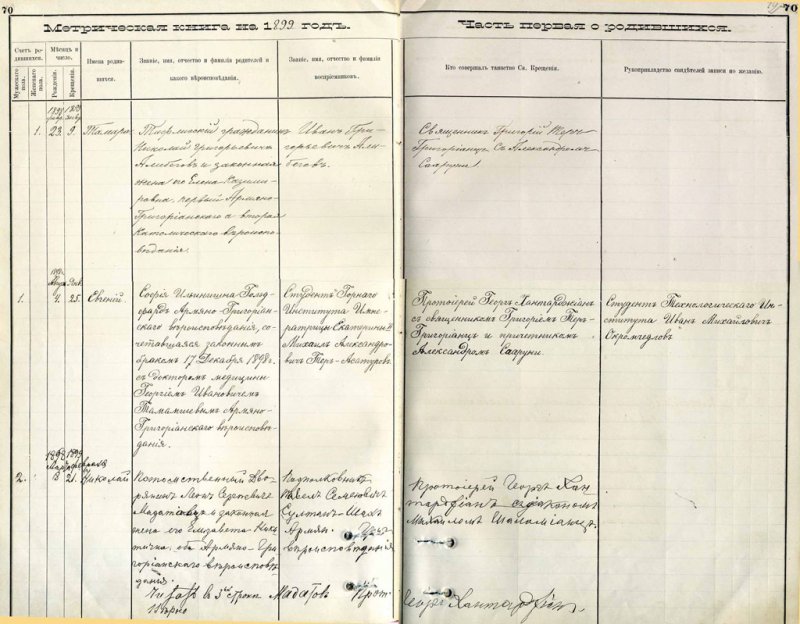 70
Метрическая книга на 1899 годъ.
Часть первая о родившихся.
70
Счетъ ро-
дившихся.
Мужескаго пола.
Женскаго пола.
Мѣсяцъ и
число.
Рожденія.
Крещенія.
Имена роди-
вшихся.
Званіе, имя, отчество и фамилія родителей и
какого вѣроисповѣданія.
Званіе, имя, отчество и фамилія
воспріемниковъ.
Кто совершалъ таинство Св. Крещенія.
Рукоприкладство свидѣтелей записи по желанію.
1898 1899
1. 23. 9. Тамара.
Тифлисскій гражданинъ
Николай Григорьевичъ
Алибеговъ и законная
жена его Елена Казими-
ровна, первый Армяно-
Григоріанскаго а вторая
Католическаго вѣроиспо-
вѣданія.
Иванъ Гри-
горьевичъ Али-
беговъ.
Священникъ Григорій Теръ-
Григоріанцъ съ Александромъ
1898
Дек.
1. 4. 25. Евгеній.
Софія Ильинишна
Армяно-Григоріан-
скаго вѣроисповѣданія, со-
четавшаяся законнымъ
бракомъ 17 Декабря 1898 г.
съ докторомъ медицины
Георгіемъ Ивановичемъ
Тамамшевымъ Армяно-
Григоріанскаго вѣроисповѣ-
данія.
Студентъ Горнаго
Института Импе-
ратрицы Екатерины II
Михаилъ Александро-
вичъ Теръ-Асатуровъ
Протоіерей Георгъ Хантарджіанъ
съ священникомъ Григоріемъ Теръ-
Григоріанцъ и причетникомъ
Александромъ
Студентъ Технологическаго Ин-
ститута Иванъ Михайловичъ
1898 1899
2. 21. Николай
Потомственный Дво-
рянинъ Леонъ
и законная
жена его Елизавета Ники-
тична, оба Армяно-Гри-
горіанскаго вѣроисповѣ-
данія.
Подполковникъ
Павелъ Семеновичъ
Султанъ Шахъ
Армян.
вѣроисповѣданія
Протоіерей Георгъ Хан-
тарджіанъ съ дьякономъ
Михаиломъ
въ 3й строкѣ Мадатовъ Прот.
Вѣрно
Георгъ Хантарджіанъ